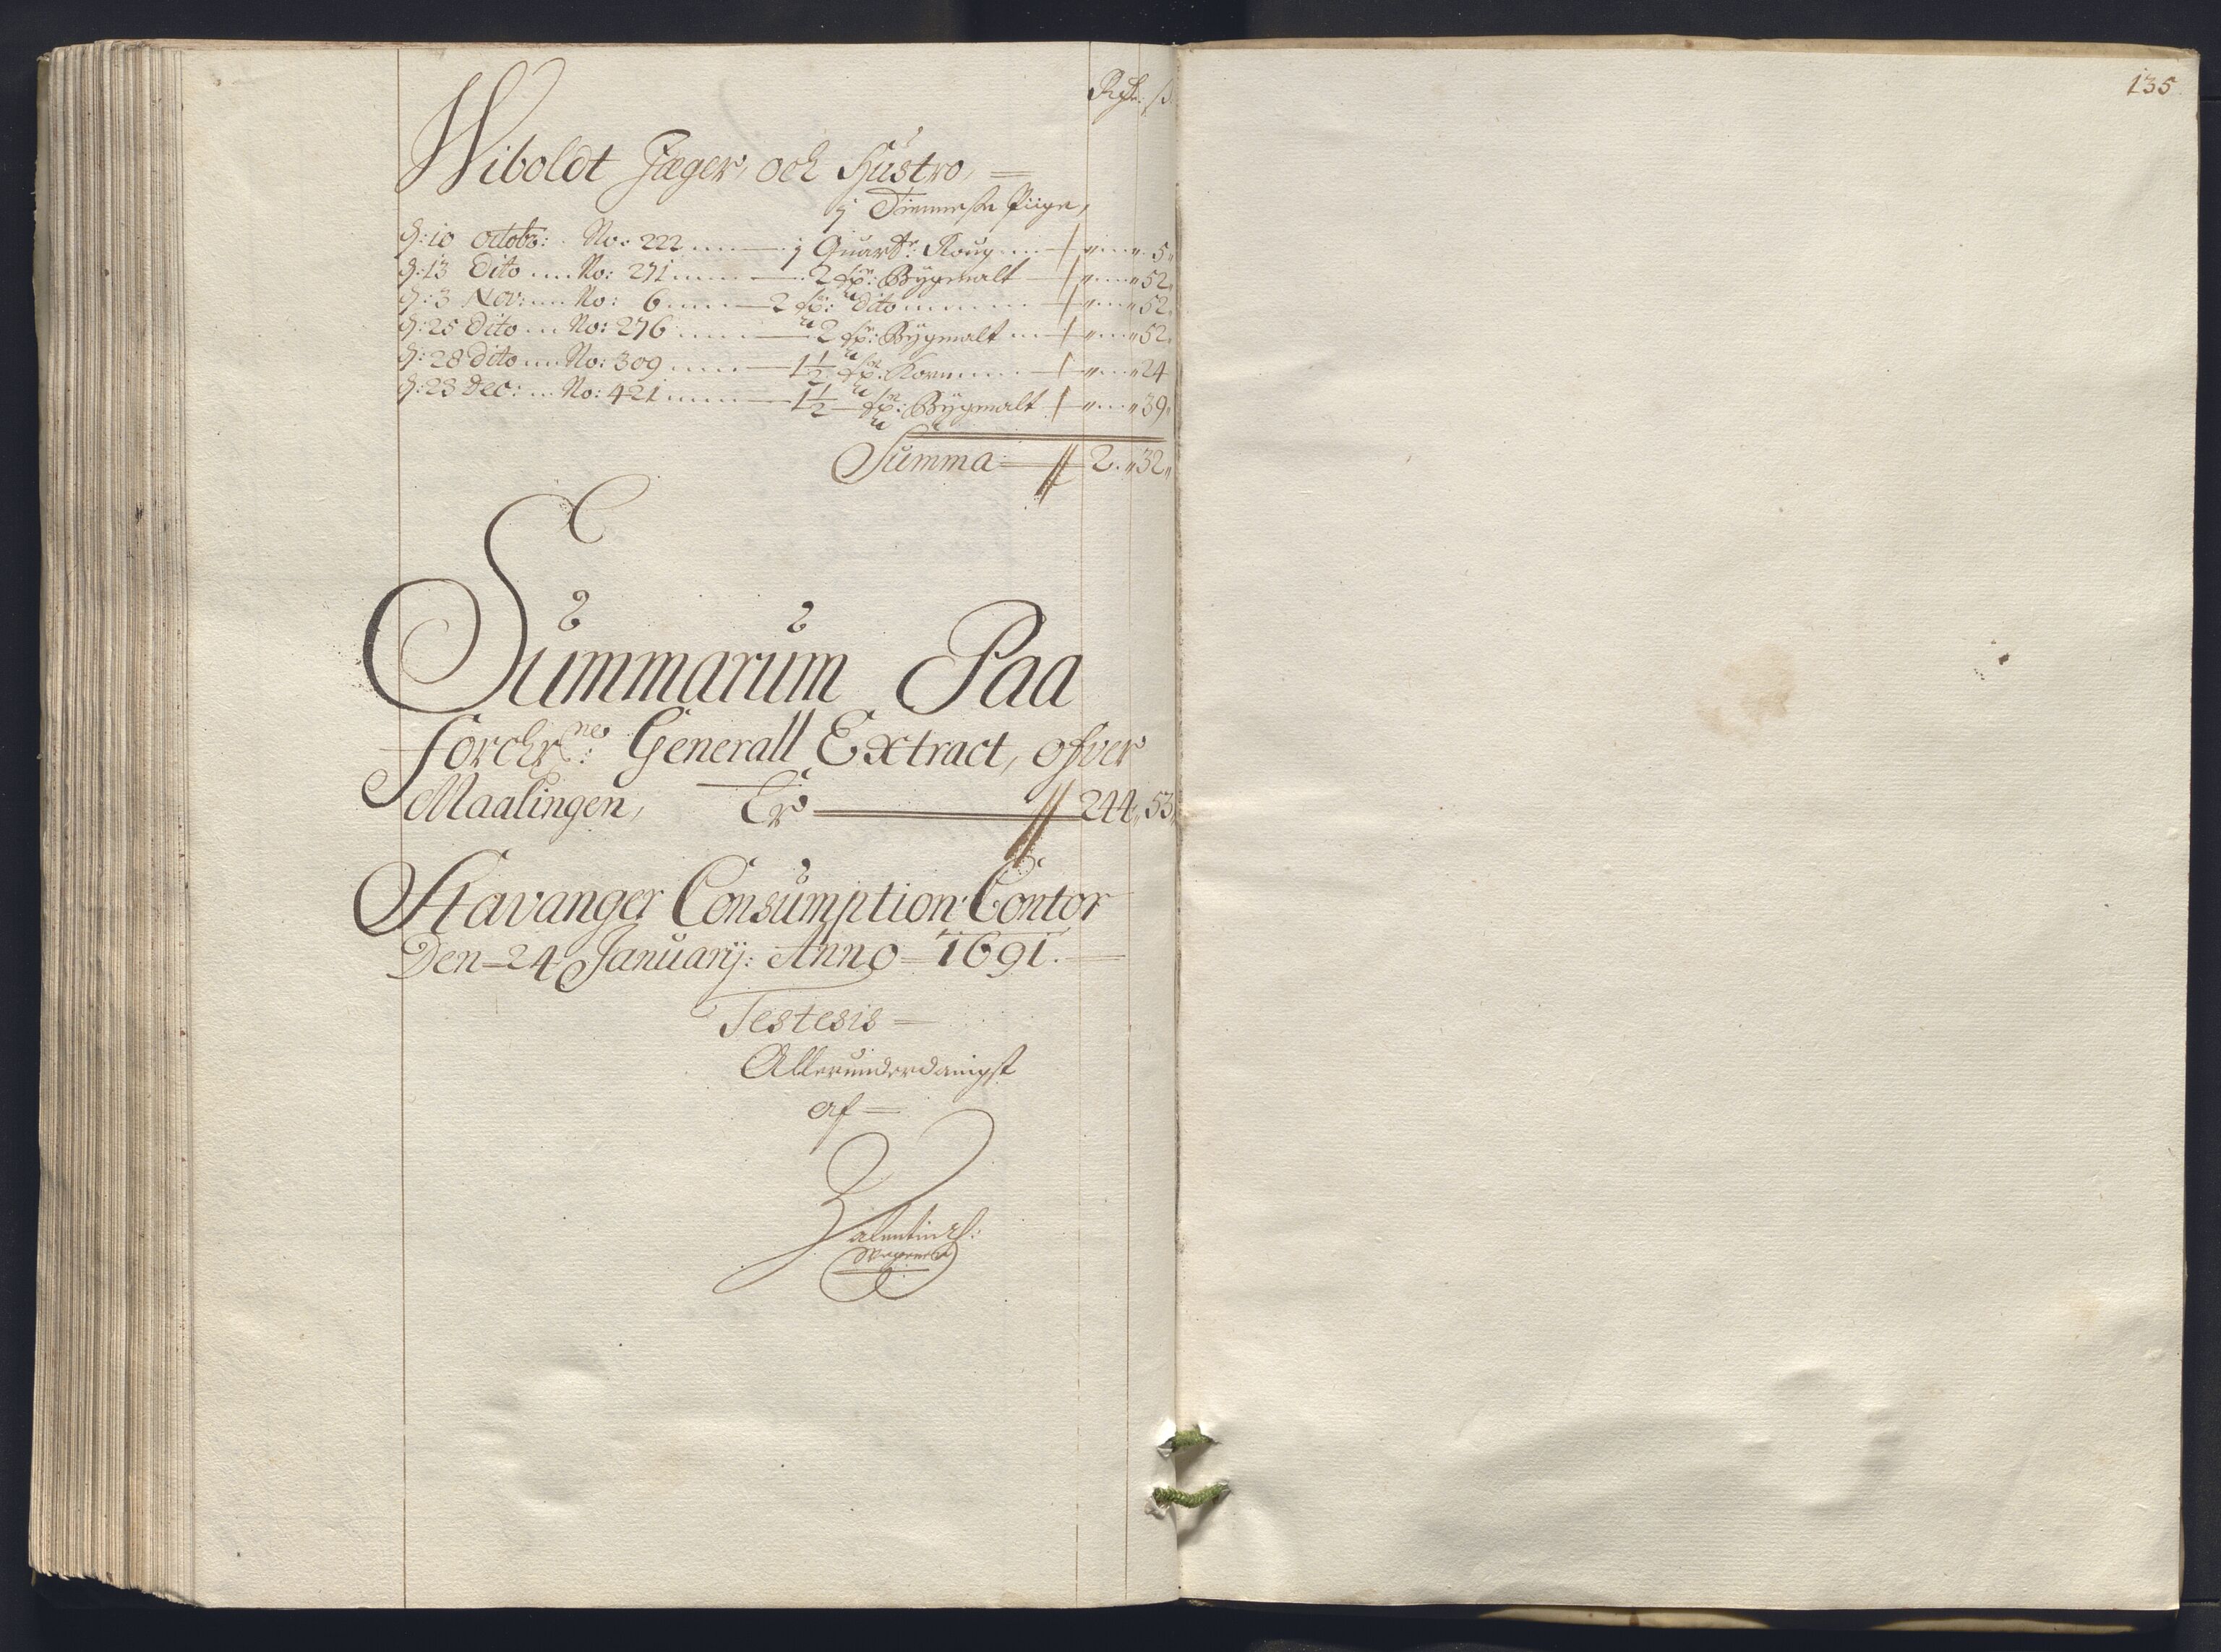 Rdr: ß
Wiboldt Jæger, och Hustro,
j Tienneste Piige,
d: 10 octob: No: 222 j Quart: Roug 5
d: 13 Dito No: 271 2 sp: Bÿgmalt 52
d: 3 Nov: No: 6 2 sp: dito 52
d: 25 dito No: 276 2 sp: Bÿgmalt 52
d: 28 dito No: 309 1½ sp: Korn 24
d: 23 Dec: No: 421 1½ sp: Bÿgmalt 39
Summa 2 32
Summarum Paa
forchrne: Generall Extract, ofver
Maalingen, Er 244 53
Stavanger Consumption Contor
Den 24 Januarij: Anno 1691.
Testesis
Allerunderdanigst
af
Valentin
135